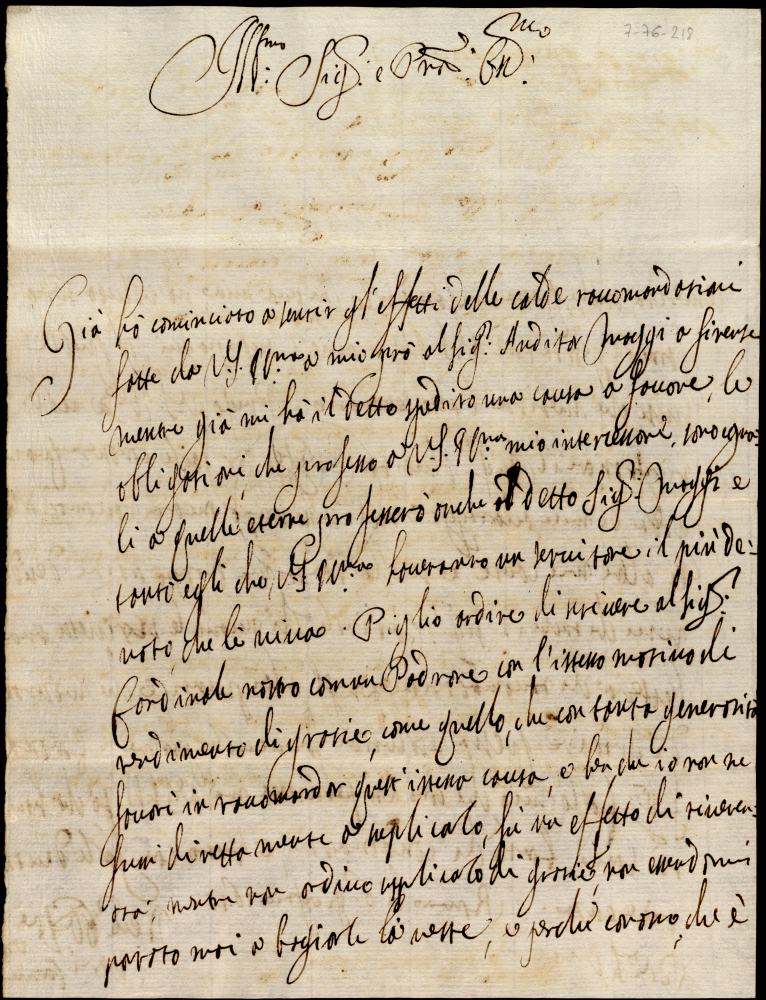 7-76-218
Ill:mo Sig:r e Pron: Col:mo
Già hò cominciato a sentir gl'effetti delle calde raccomandationi
fatte da V.S. Ill:ma a mio prò al Sig:r Auditor Maggi a Firenze
mentre già mi hà il detto spedito una causa a favore, le
obligationi, che professo a V.S. Ill:ma mio intercessore, sono egua=
li a quelle eterne professerò anche al detto Sig:r Maggi e
tanto egli che V.S. Ill:ma haveranno un servitore il più de:
voto, che li viva. Piglio ardire di scrivere al Sig:r
Cardinale nostro comun Padrone con l'istesso motivo di
rendimento di gratie, come quello, che con tanta generosità
favorì in raccomandar quest'istessa causa, e benche io non ne
fussi direttamente a suplicalo, fù un effetto di riveren=
za, mentre non ardivo supplicalo di gratie, non essendomi
portato mai a bagiarle la veste, e perche conosco, che è